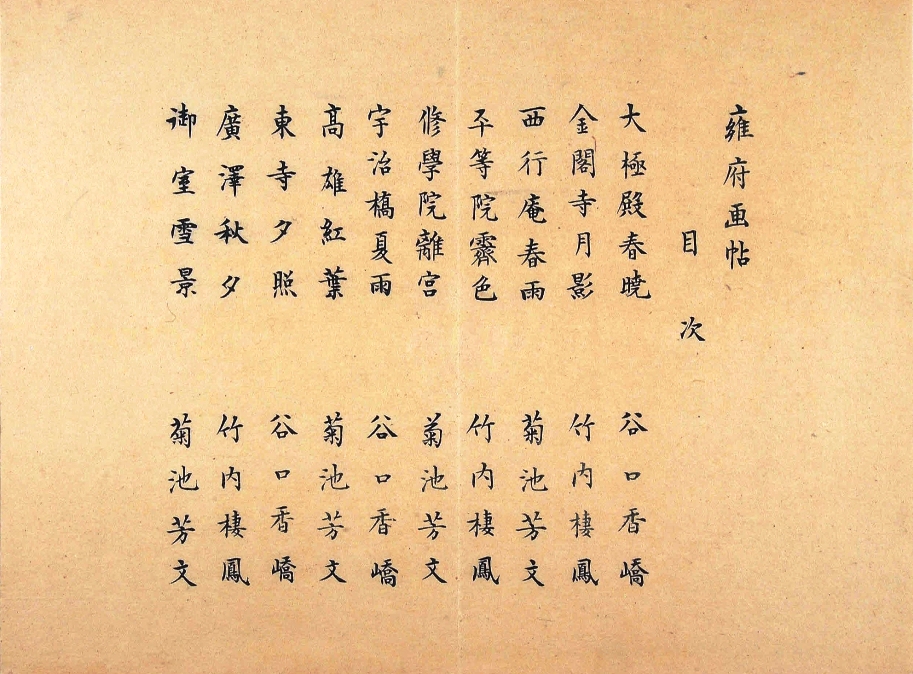 雍府画帖
目次
大極殿春曉 谷口香嶠
金閣寺月影 竹内棲鳳
西行庵春雨 菊池芳文
平等院霽色 竹内棲鳳
修學院離宮 菊池芳文
宇治橋夏雨 谷口香嶠
高雄紅葉 菊池芳文
東寺夕照 谷口香嶠
廣澤秋夕 竹内棲鳳
御室雪景 菊池芳文